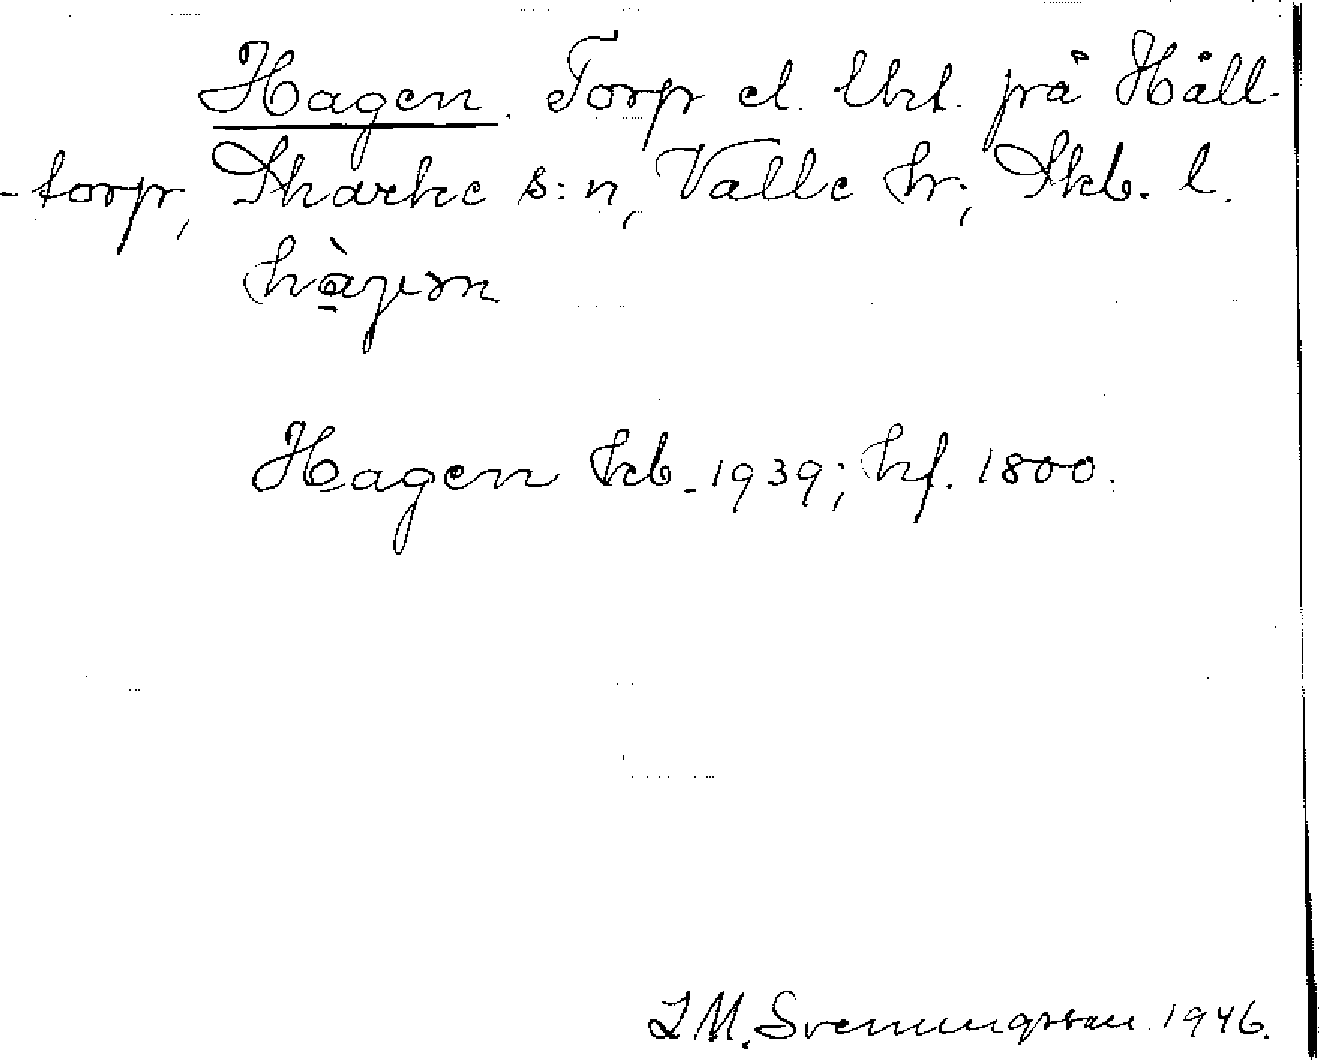 Hagen. Torp el. lht. på Håll-
-torp, Skarke s:n, Valle hr; Skb. l.
hàgen
Hagen kb. 1939; hf. 1800.
I.M. Svenungsson 1946.